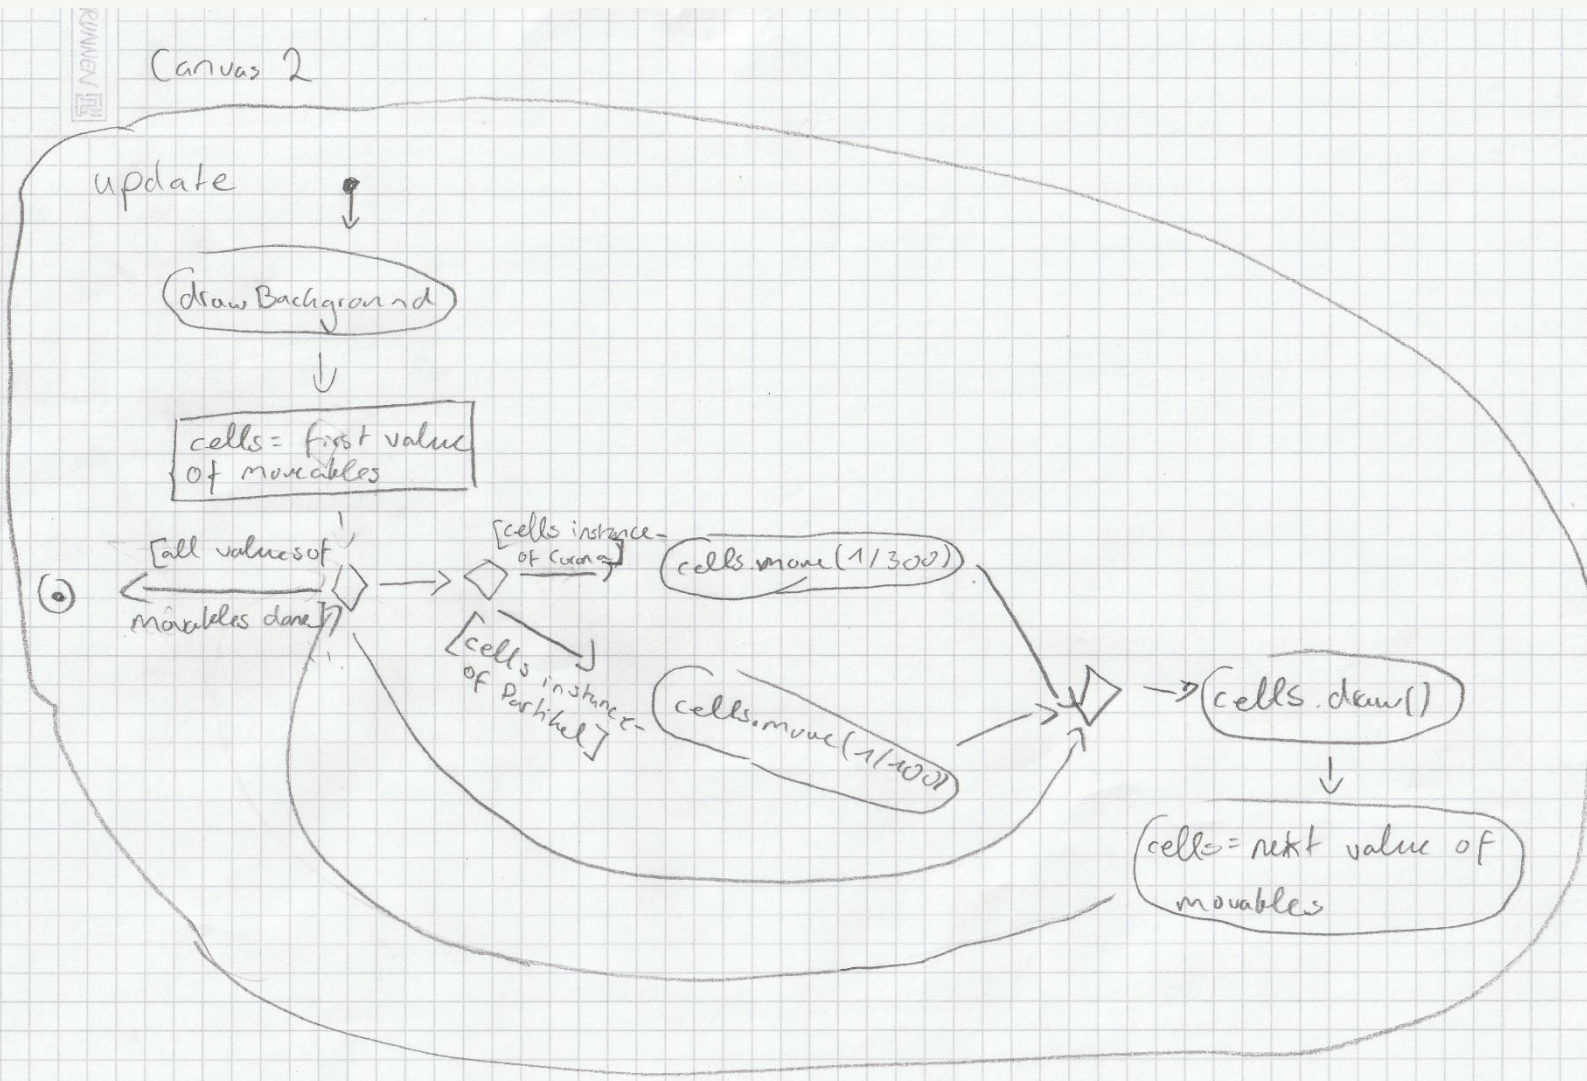 BRUNNEN
Canvas 2
update
drawBackground
cells = first value
of moveables
[all values of
movables done]
[cells instance-
of Corona]
cells.move(1/300)
[cells instance-
of Partikel]
cells.move(1/100)
cells.draw()
cells = next value of
movables